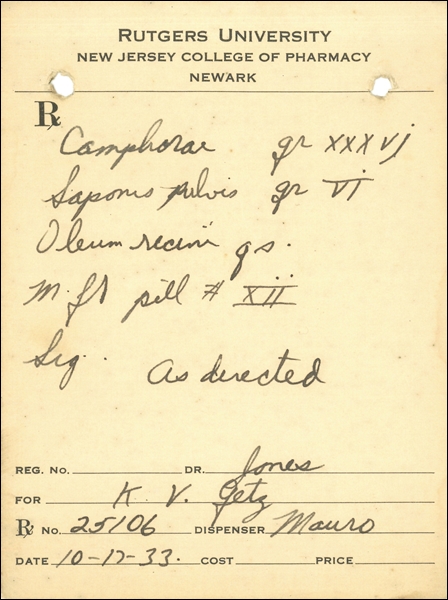 RUTGERS UNIVERSITY
NEW JERSEY COLLEGE OF PHARMACY
NEWARK
℞
Camphorae gr xxxvj
Saponis pulvis gr vi
Oleum recini qs.
M. ft pill # xii
Sig. As directed
REG. NO. DR. Jones
FOR K. V. Getz
℞ NO. 25106 DISPENSER Mauro
DATE 10-17-33. COST PRICE